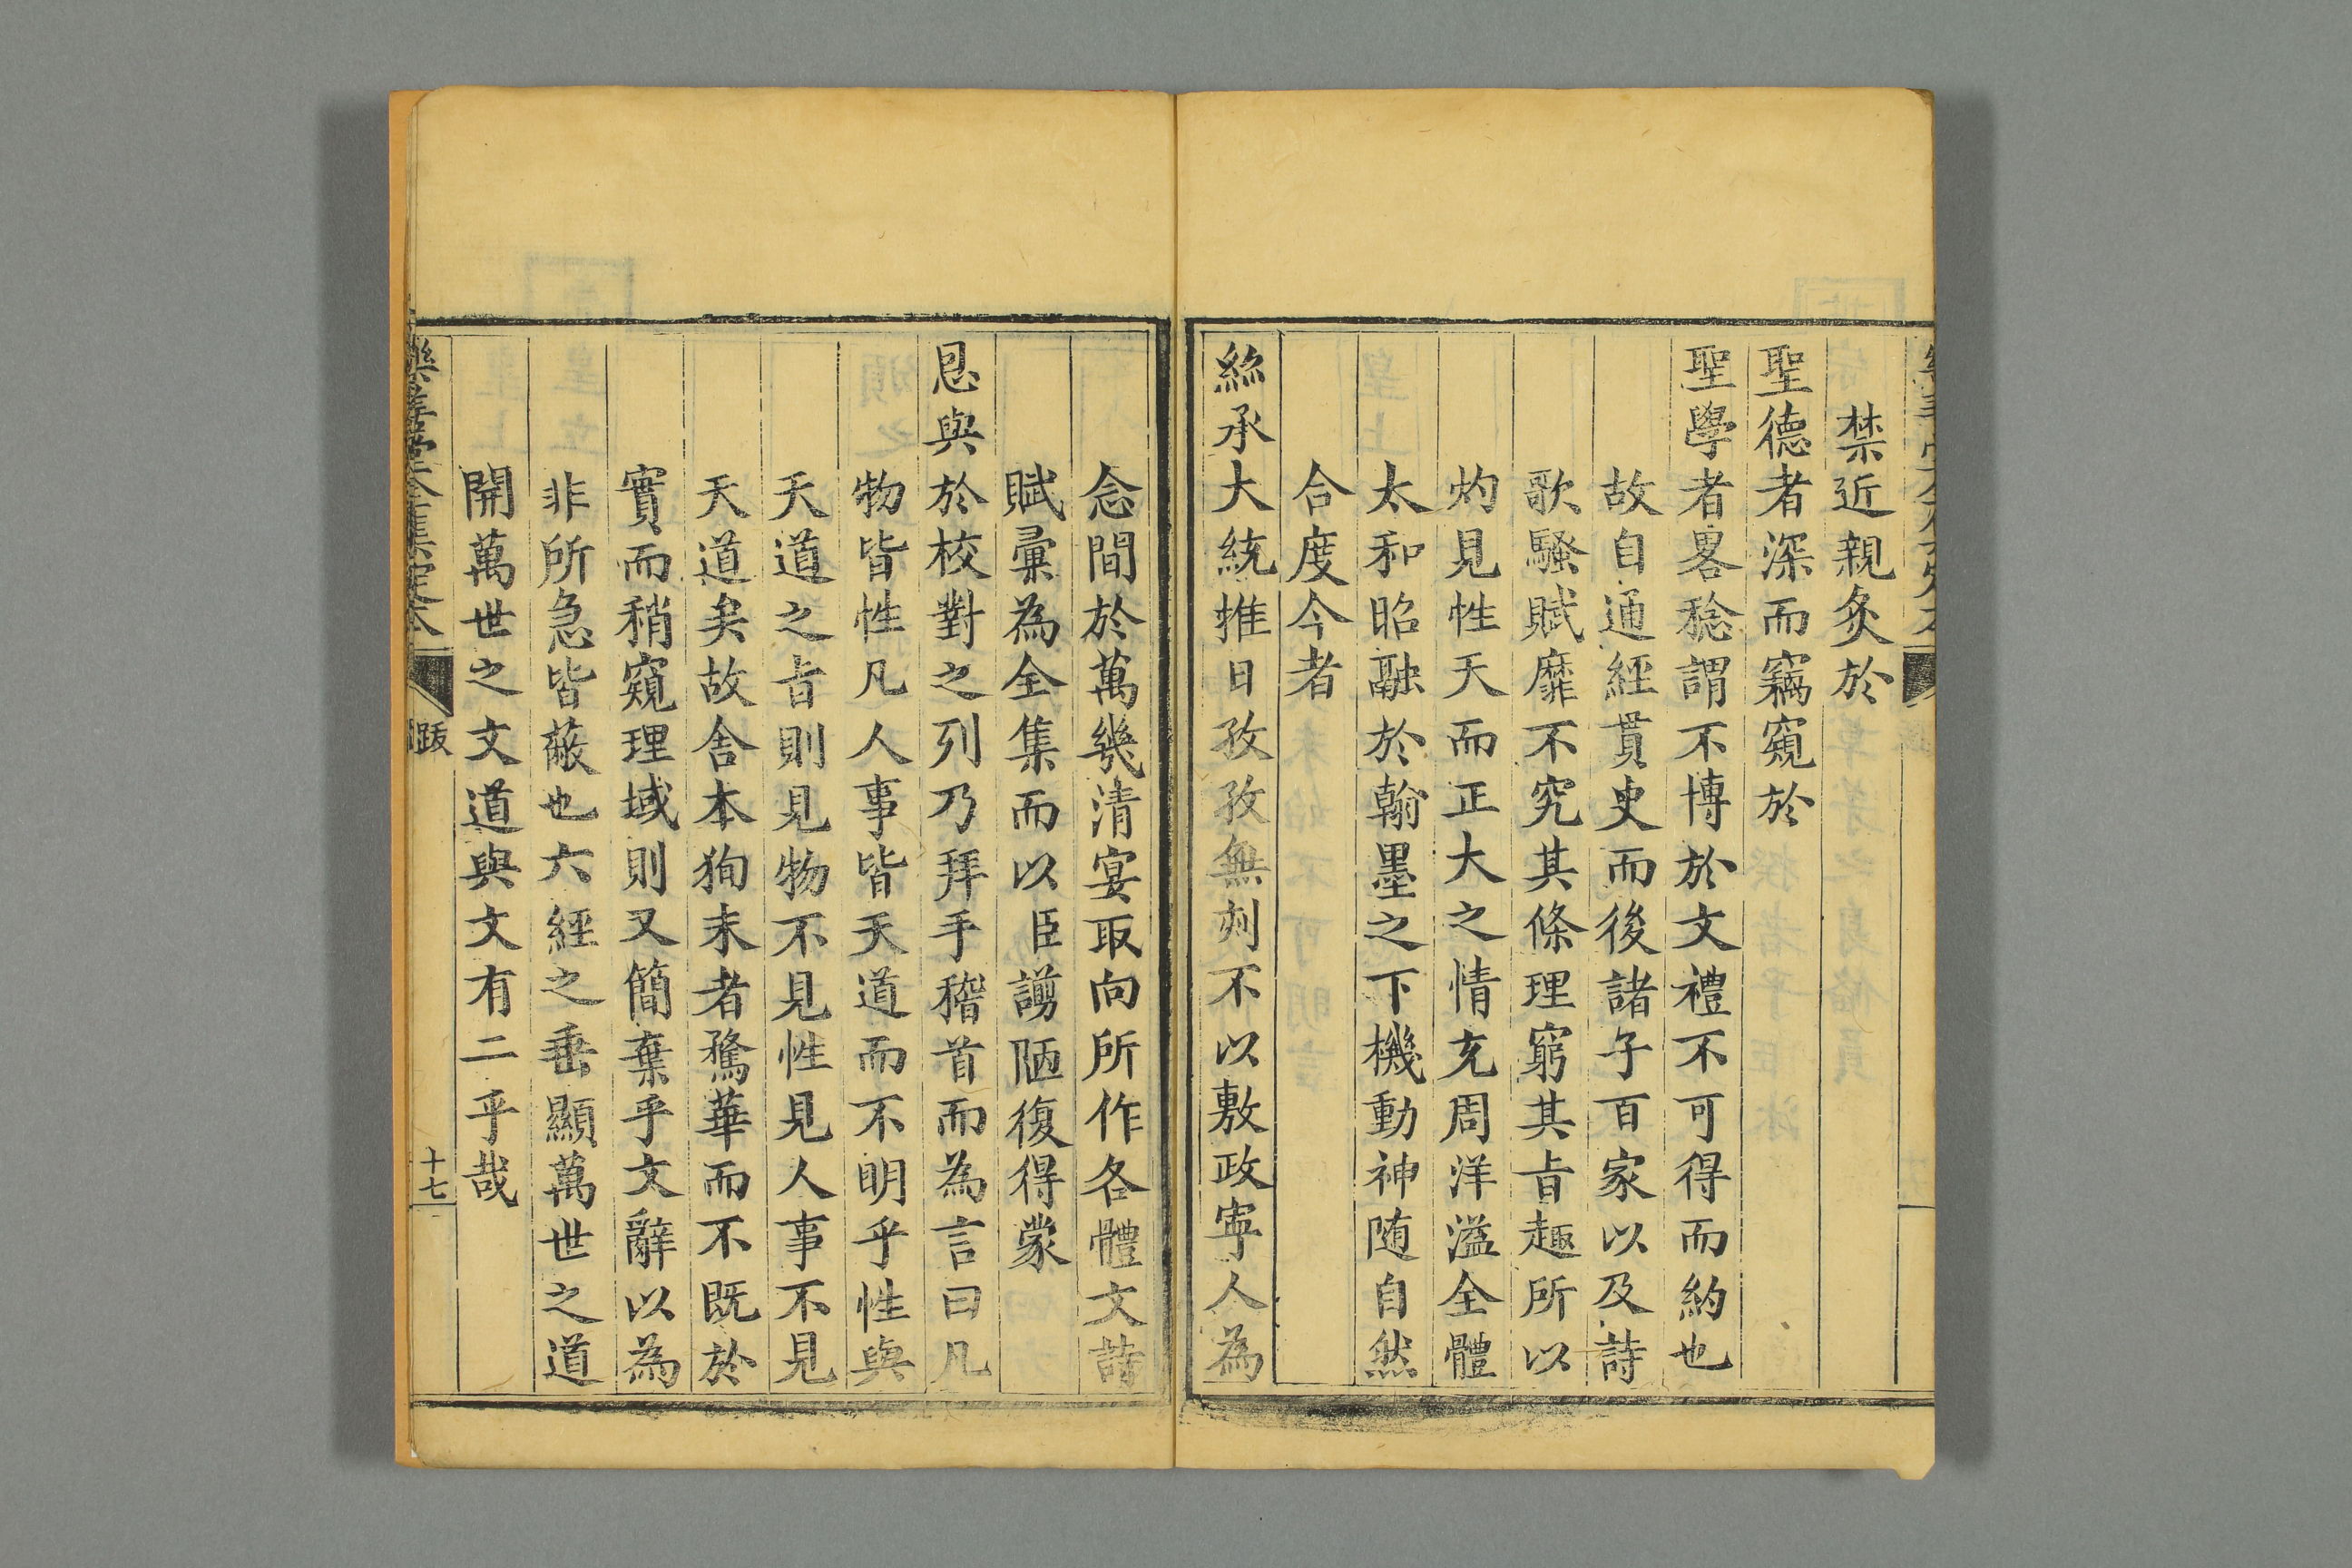 禁近親炙於
聖德者深而竊窺於
聖學者畧稔謂不博於文禮不可得而約也
故自通經貫史而後諸子百家以及詩
歌騷賦靡不究其條理窮其㫖趣所以
灼見性天而正大之情充周洋溢全體
太和昭融於翰墨之下機動神随自然
合度今者
絲承大統推日孜孜無刻不以敷政寧人為
念間於萬幾清宴取向所作各體文詩
賦彙為全集而以臣謭陋復得蒙
恩與於校對之列乃拜手稽首而為言曰凡
物皆性凡人事皆天道而不明乎性與
天道之㫖則見物不見性見人事不見
天道矣故舍本狥末者騖華而不既於
實而稍窺理域則又簡棄乎文辭以為
非所急皆蔽也六經之垂顯萬世之道
開萬世之文道與文有二乎哉
樂善堂全集定本
跋
十七